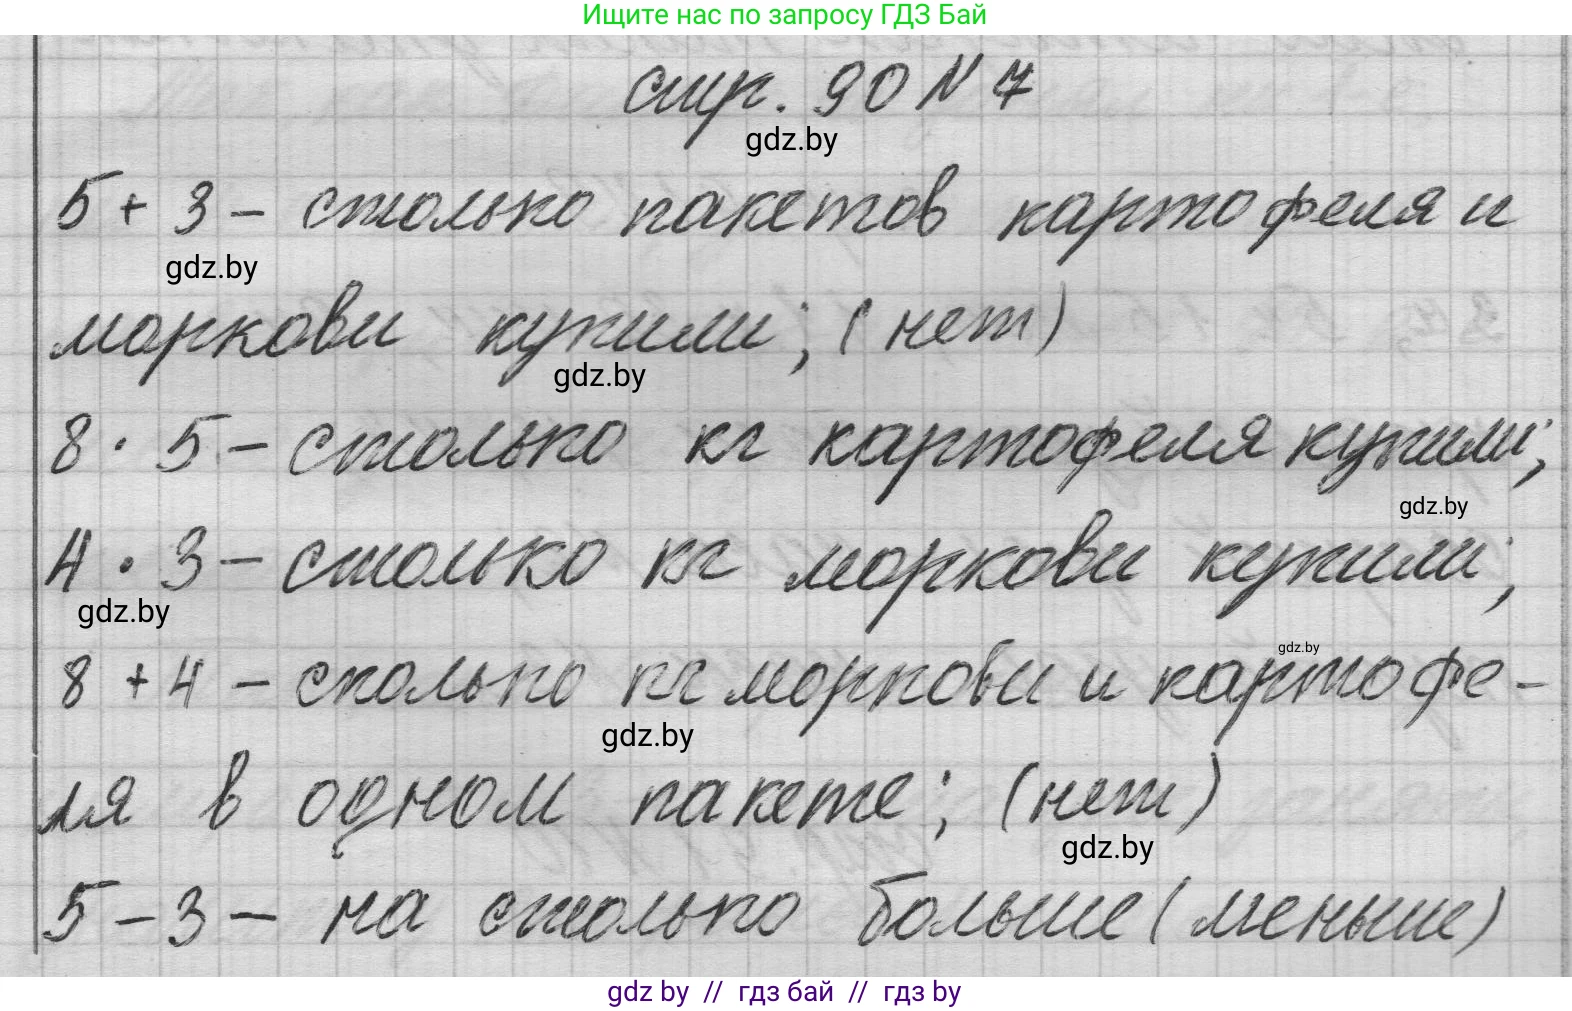 Ищите нас по запросу ГДЗ Бай
стр. 90 N 7
gdz.by
5 + 3 – столько пакетов картофеля и
gdz.by
моркови купили; (нет)
gdz.by
8 · 5 – столько кг картофеля купили;
gdz.by
4 · 3 – столько кг моркови купили;
gdz.by
gdz.by
8 + 4 – сколько кг моркови и картофе-
gdz.by
ля в одном пакете; (нет)
gdz.by
5 – 3 – на столько больше (меньше)
gdz by // гдз бай // гдз by